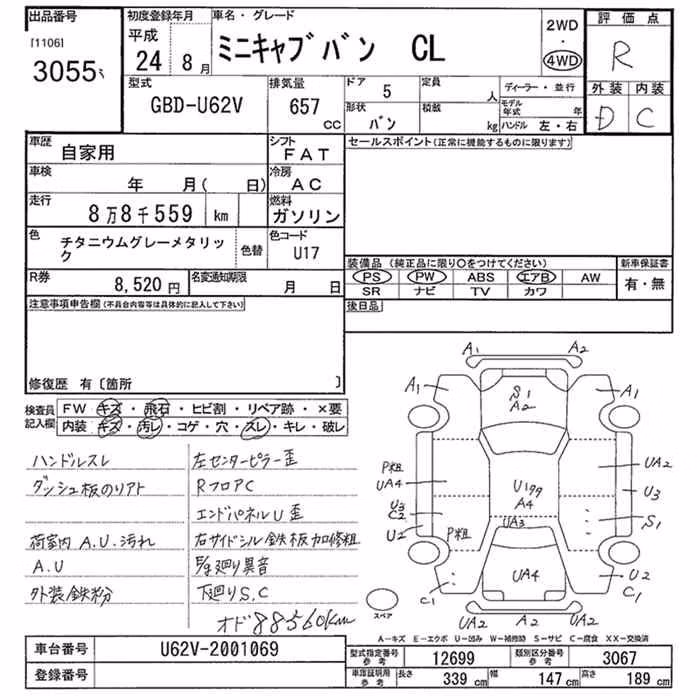 出品番号
[1106]
3055
初度登録年月
平成
24 8 月
車名・グレード
ミニキャブバン CL
2WD
・
4WD
評価点
R
外装 内装
D C
型式
GBD-U62V
排気量
657 CC
ドア 5
定員 人
形状 バン
積載 kg
ディーラー・並行
モデル年式 年
ハンドル 左・右
車歴 自家用
シフト FAT
車検 年 月( 日)
冷房 AC
走行 8万8千559 km
燃料 ガソリン
色 チタニウムグレーメタリック
色替
色コード U17
R券 8,520 円
名変通知期限 月 日
セールスポイント(正常に機能するものに限ります)
装備品 (純正品に限り○をつけてください)
新車保証書
PS PW ABS エアB AW
SR ナビ TV カワ
有・無
後日品
注意事項申告欄(不具合内容等は具体的に記入して下さい)
修復歴 有〔箇所 〕
検査員記入欄
FW キズ・飛石・ヒビ割・リペア跡・×要
内装 キズ・汚レ・コゲ・穴・スレ・キレ・破レ
ハンドルスレ
ダッシュ板のりアト
荷室内 A.U.汚れ
A.U
外装鉄粉
左センターピラー歪
RフロアC
エンドパネルU歪
右サイドシル鉄板加修粗
廻り異音
下廻りS.C
オド88560km
A1 A2
A1 S1 A2 A1
P粗 UA4 UA2
U3 C2 U199 A4 U3
U2 P粗 UA3 S1
C1 UA4 U2 C1
UA2 A2 UA2
スペア
A-キズ E-エクボ U-凹み W-補修跡 S-サビ C-腐食 XX-交換済
車台番号 U62V-2001069
登録番号
型式指定番号 参考 12699
類別区分番号 参考 3067
車庫証明用 参考 長さ 339 cm 幅 147 cm 高さ 189 cm